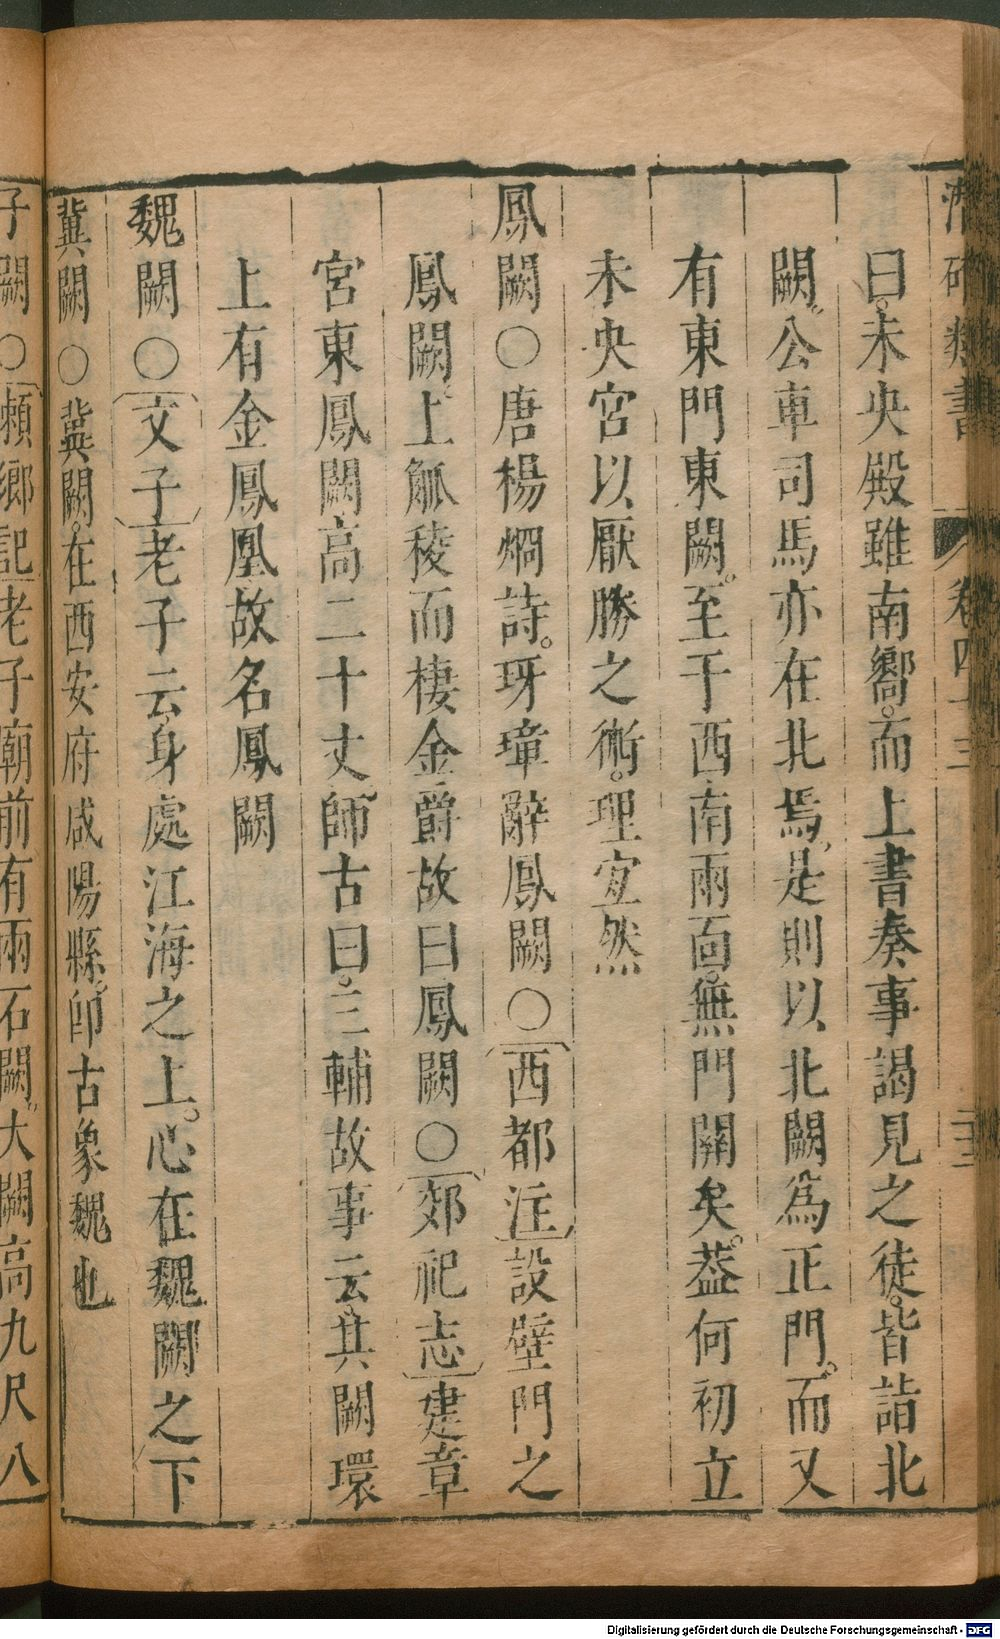 潛確類書 卷四十三 二三
曰未央殿雖南嚮而上書奏事謁見之徒皆詣北
闕公車司馬亦在北焉是則以北闕為正門而又
有東門東闕至于西南兩面無門闕矣葢何初立
未央宮以厭勝之術理宜然
鳳闕○唐楊烱詩牙璋辭鳳闕○西都注設壁門之
鳳闕上觚稜而棲金爵故曰鳳闕○郊祀志建章
宮東鳳闕高二十丈師古曰三輔故事云其闕環
上有金鳳凰故名鳳闕
魏闕○文子老子云身處江海之上心在魏闕之下
冀闕○冀闕在西安府咸陽縣卽古象魏也
子闕○賴鄉記老子廟前有兩石闕大闕高九尺八
Digitalisierung gefördert durch die Deutsche Forschungsgemeinschaft - DFG